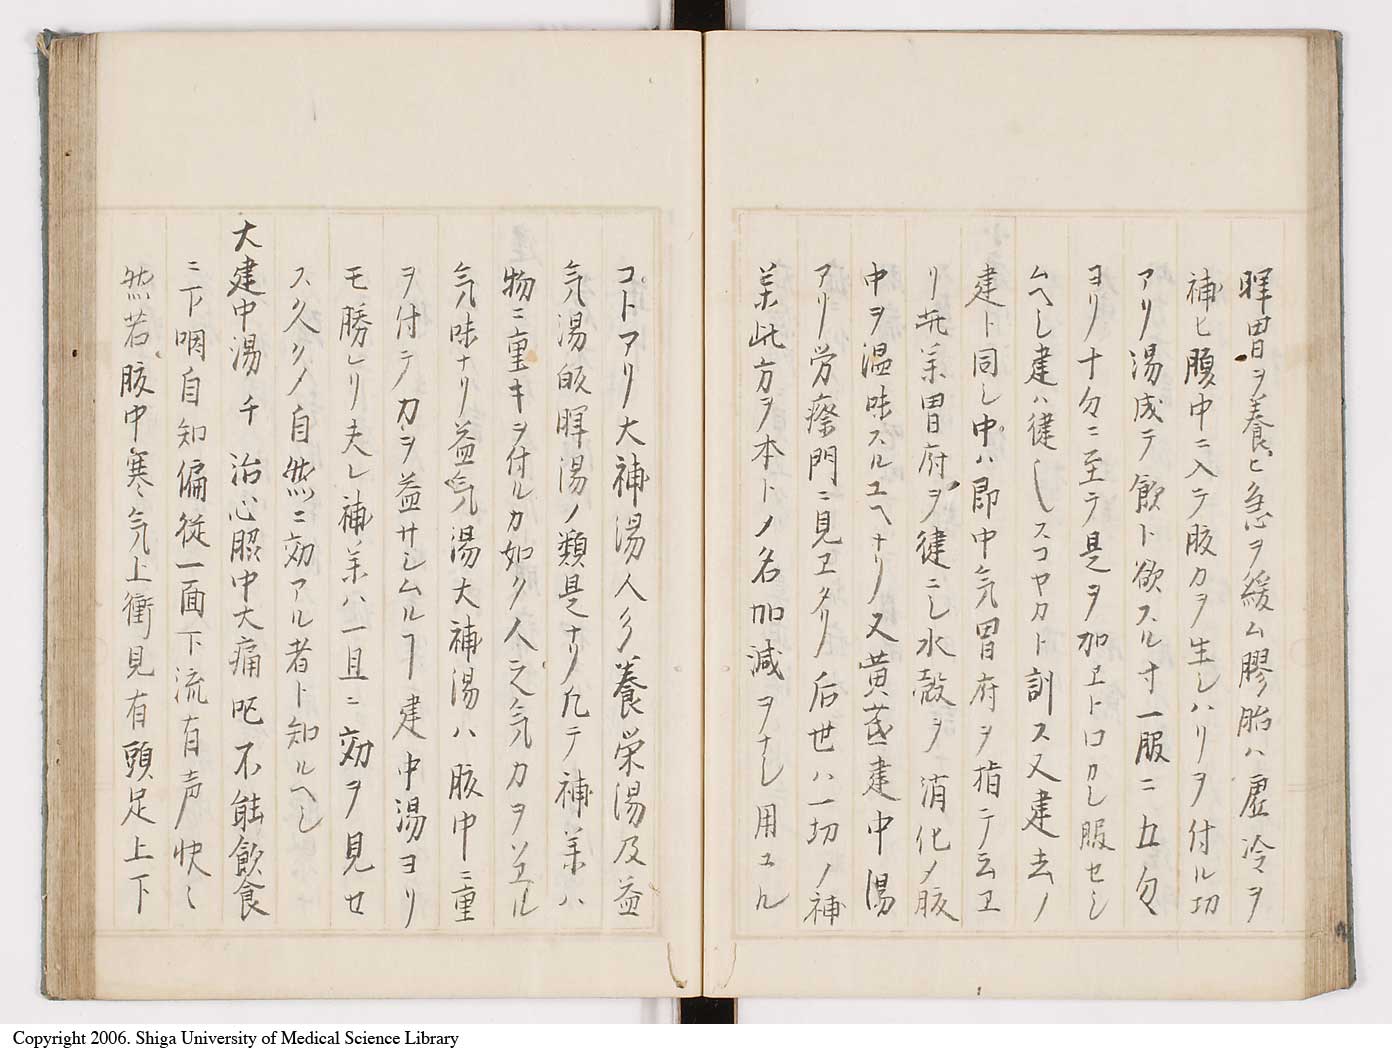 暉胃ヲ養ヒ急ヲ緩ム膠胎ハ虚冷ヲ
補ヒ腹中ニ入テ胘力ヲ生シハリヲ付ル切
アリ湯成テ飲ト欲スル寸一服ニ五匁
ヨリ十匁ニ至テ是ヲ加ヱトロカし服セし
ムヘし建ハ健しスコヤカト訓ス又建去ノ
建ト同し中ハ即中気胃府ヲ指テ云ヱ
リ此薬胃府ヲ健ニし水穀ヲ消化メ胘
中ヲ温味スルユヘナリ又黄茋建中湯
アリ労瘵門ニ見ヱタリ后世ハ一切ノ補
薬此方ヲ本トメ名加減ヲナし用ユル
コトアリ大補湯人参養栄湯及益
気湯皈暉湯ノ類是ナリ凡テ補薬ハ
物ニ重キヲ付ルカ如ク人之気力ヲソヱル
気味ナリ益気湯大補湯ハ胘中ニ重
ヲ付テ力ヲ益サシムルヿ建中湯ヨリ
モ勝レリ夫レ補薬ハ一旦ニ効ヲ見せ
ス久クノ自然ニ効アル者ト知ルヘし
大建中湯 千 治心胘中大痛呕不能飲食
ニ下咽自知偏従一面下流有声快々
然若胘中寒気上衝見有頭足上下
Copyright 2006. Shiga University of Medical Science Library